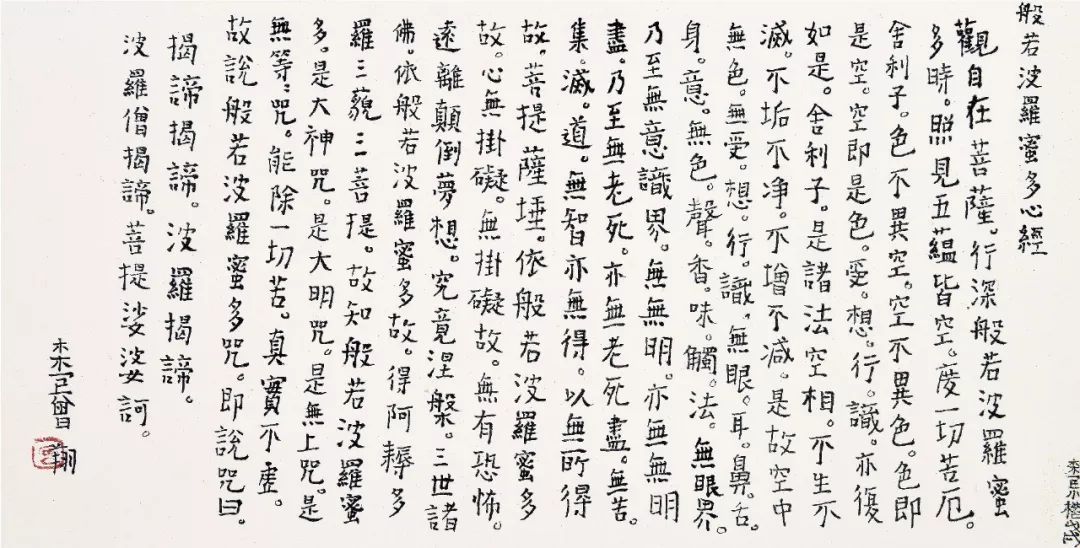 般若波羅蜜多心經
觀自在菩薩。行深般若波羅蜜
多時。照見五蘊皆空。度一切苦厄。
舍利子。色不異空。空不異色。色即
是空。空即是色。受。想。行。識。亦復
如是。舍利子。是諸法空相。不生不
滅。不垢不净。不增不减。是故空中
無色。無受。想。行。識。無眼。耳。鼻。舌。
身。意。無色。聲。香。味。觸。法。無眼界。
乃至無意識界。無無明。亦無無明
盡。乃至無老死。亦無老死盡。無苦。
集。滅。道。無智亦無得。以無所得
故。菩提薩埵。依般若波羅蜜多
故。心無掛礙。無掛礙故。無有恐怖。
遠離顛倒夢想。究竟涅槃。三世諸
佛。依般若波羅蜜多故。得阿耨多
羅三藐三菩提。故知般若波羅蜜
多。是大神咒。是大明咒。是無上咒。是
無等々咒。能除一切苦。真實不虛。
故說般若波羅蜜多咒。即說咒曰。
揭諦揭諦。波羅揭諦。
波羅僧揭諦。菩提娑婆訶。
曾翔